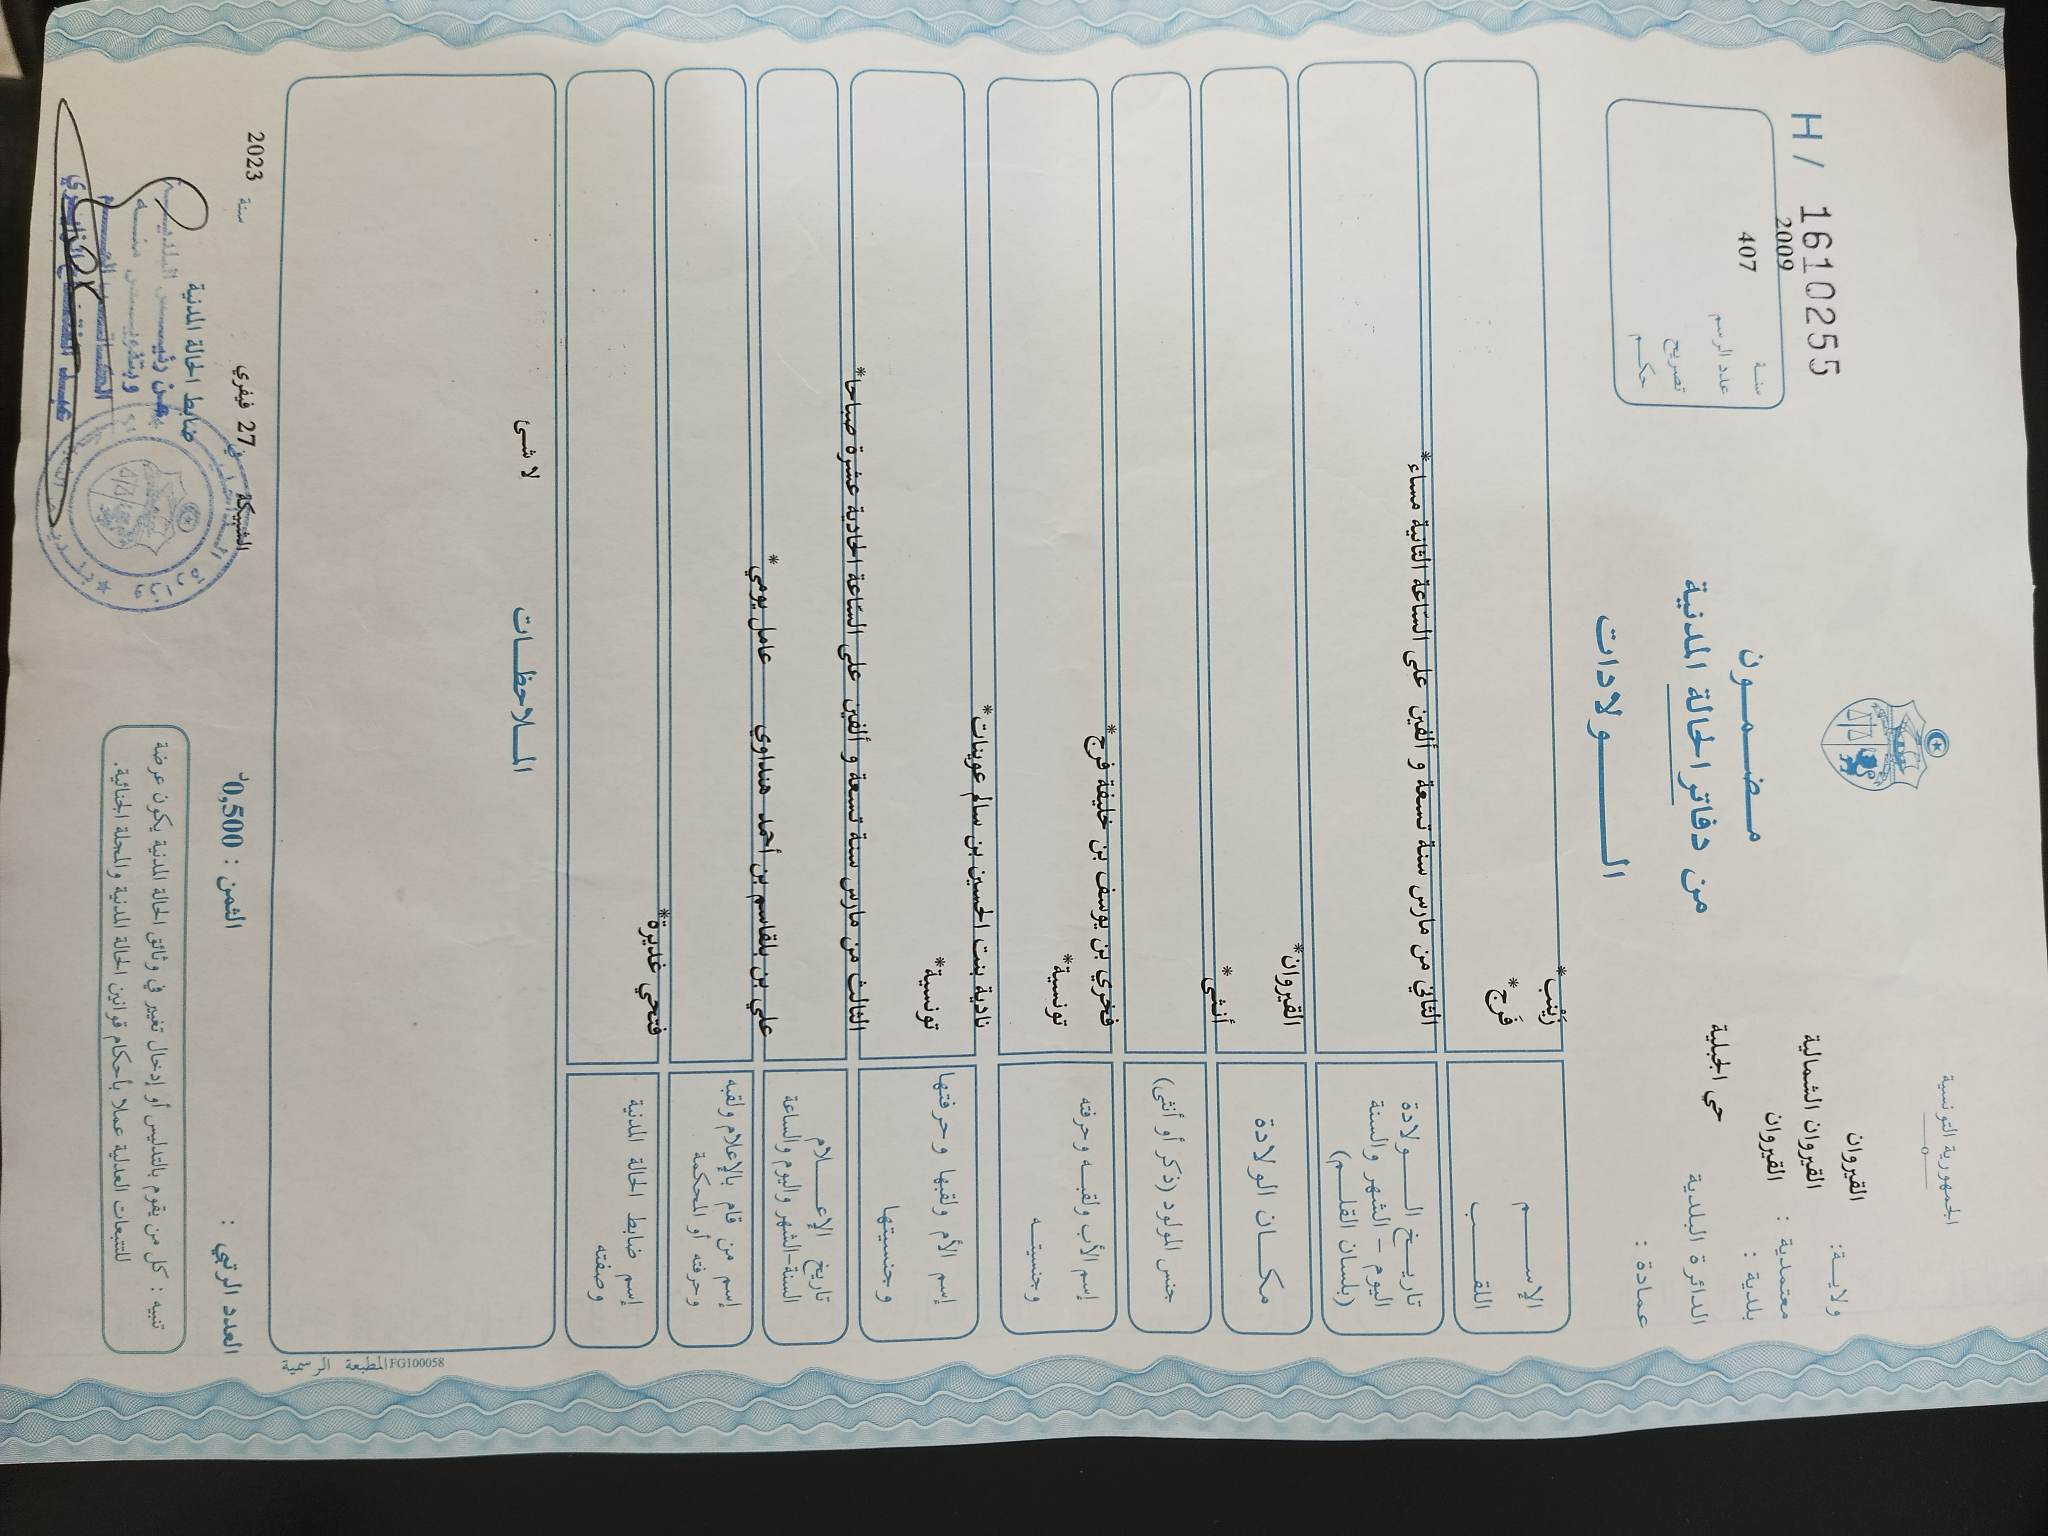 الجمهورية التونسية
ولايـة: القيروان
معتمدية : القيروان الشمالية
بلدية : القيروان
الدائرة البلدية حي الجبلية
عمادة :
H/ 1610255
سنـة 2009
عدد الرسم 407
تصريح
حكـم
مـضـمـون
من دفاتر الحالة المدنية
الـــولادات
الإســـم
اللقـــب
زَيْنب*
فَرَج*
تاريـخ الـــولادة
اليوم – الشهر والسنة
(بلسان القلـم)
الثاني من مارس سنة تسعة و ألفين على الساعة الثانية مساء*
مكـــان الولادة
القيروان*
جنس المولود (ذكر أو أنثى)
أنثى*
إسم الأب ولقبـه وحرفته
وجنسيتـه
فخري بن يوسف بن خليفة فرج*
تونسية*
إسم الأم ولقبها وحرفتها
وجنسيتها
نادية بنت الحسين بن سالم عوينات*
تونسية*
تاريخ الإعـــلام
السنة-الشهر واليوم والساعة
الثالث من مارس سنة تسعة و ألفين على الساعة الحادية عشرة صباحا*
إسم من قام بالإعلام ولقبه
وحرفته أو المحكمة
علي بن بلقاسم بن أحمد هنداوي عامل يومي*
إسم ضابط الحالة المدنية
وصفته
فتحي غديرة*
المـلاحظـات
لا شئ
FG100058 المطبعة الرسمية
العدد الرتبي :
الثمن : 0,500د
الشبيكة في 27 فيفري سنة 2023
ضابط الحالة المدنية
عن رئيس البلدية
وبتفويض منه
تنبيه : كل من يقوم بالتدليس أو إدخال تغيير في وثائق الحالة المدنية يكون عرضة
للتتبعات العدلية عملا بأحكام قوانين الحالة المدنية والمجلة الجنائية.